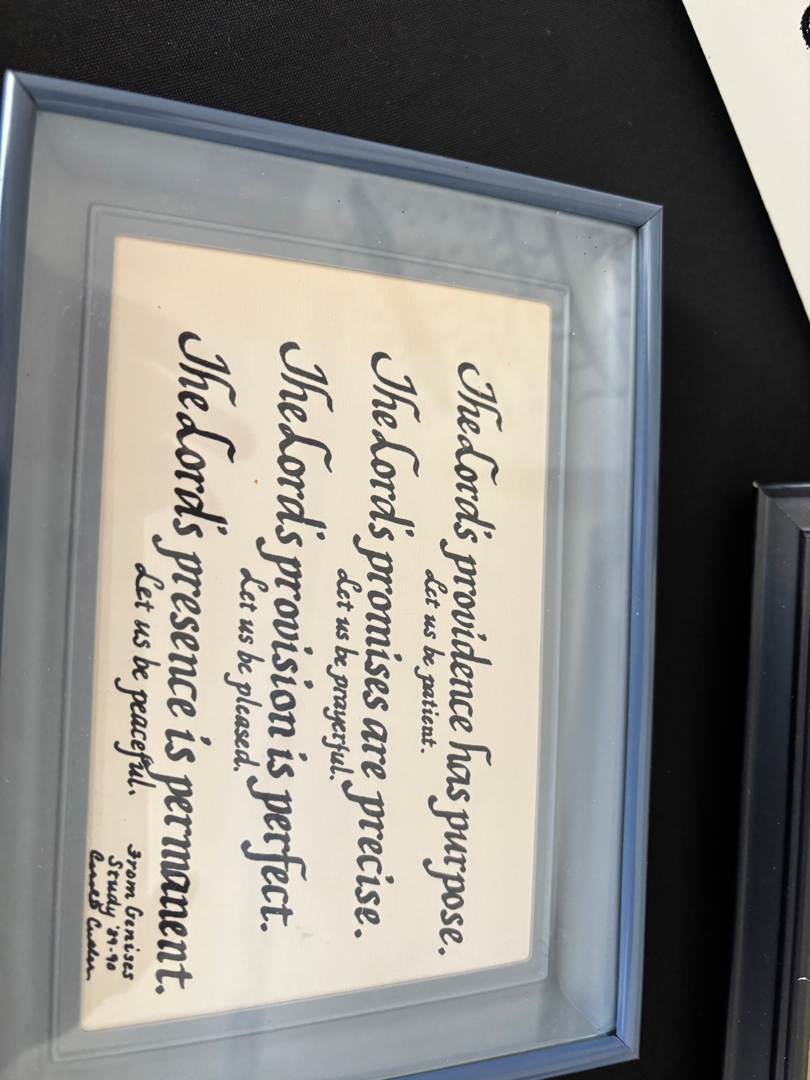 The Lord's providence has purpose.
Let us be patient.
The Lord's promises are precise.
Let us be prayerful.
The Lord's provision is perfect.
Let us be pleased.
The Lord's presence is permanent.
Let us be peaceful.
From Genises
Study '89-90